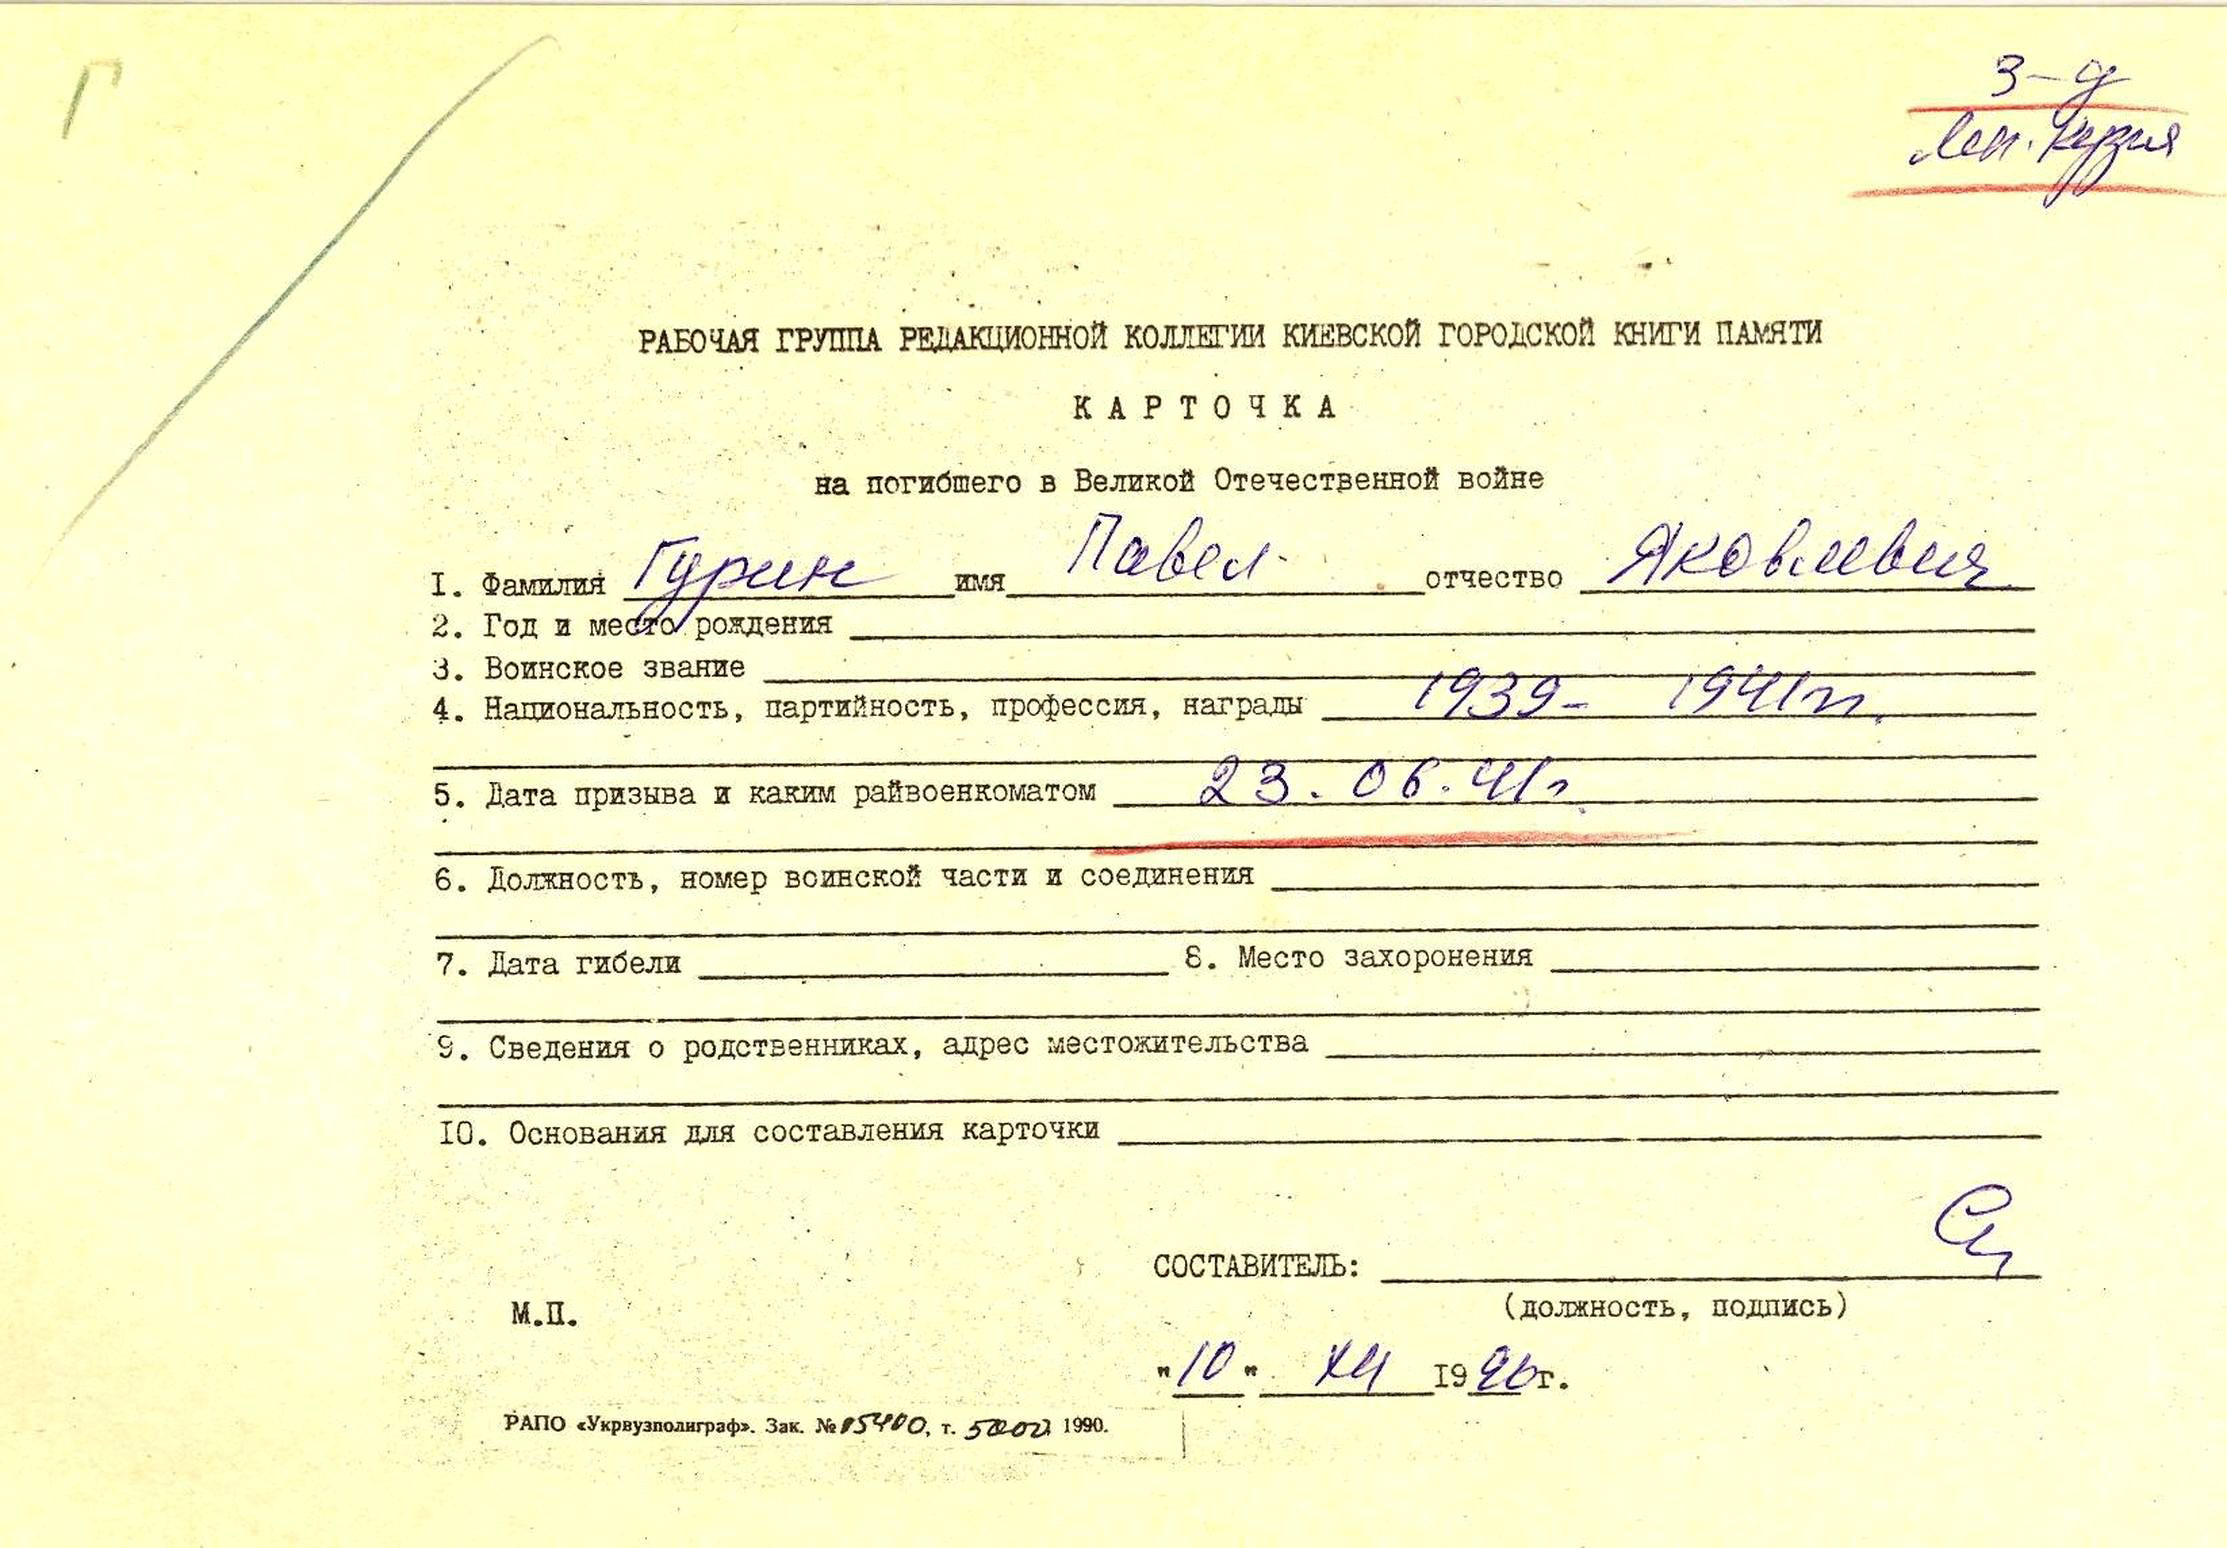 Г
З-д
Лен. кузня
РАБОЧАЯ ГРУППА РЕДАКЦИОННОЙ КОЛЛЕГИИ КИЕВСКОЙ ГОРОДСКОЙ КНИГИ ПАМЯТИ
КАРТОЧКА
на погибшего в Великой Отечественной войне
I. Фамилия Гурин имя Павел отчество Яковлевич
2. Год и место рождения
3. Воинское звание
4. Национальность, партийность, профессия, награды 1939- 1941гг.
5. Дата призыва и каким райвоенкоматом 23.06.41г.
6. Должность, номер воинской части и соединения
7. Дата гибели 8. Место захоронения
9. Сведения о родственниках, адрес местожительства
IO. Основания для составления карточки
СОСТАВИТЕЛЬ:
(должность, подпись)
М.П.
"10" XII 1990г.
РАПО «Укрвузполиграф». Зак. № 05400, т. 5000 1990.